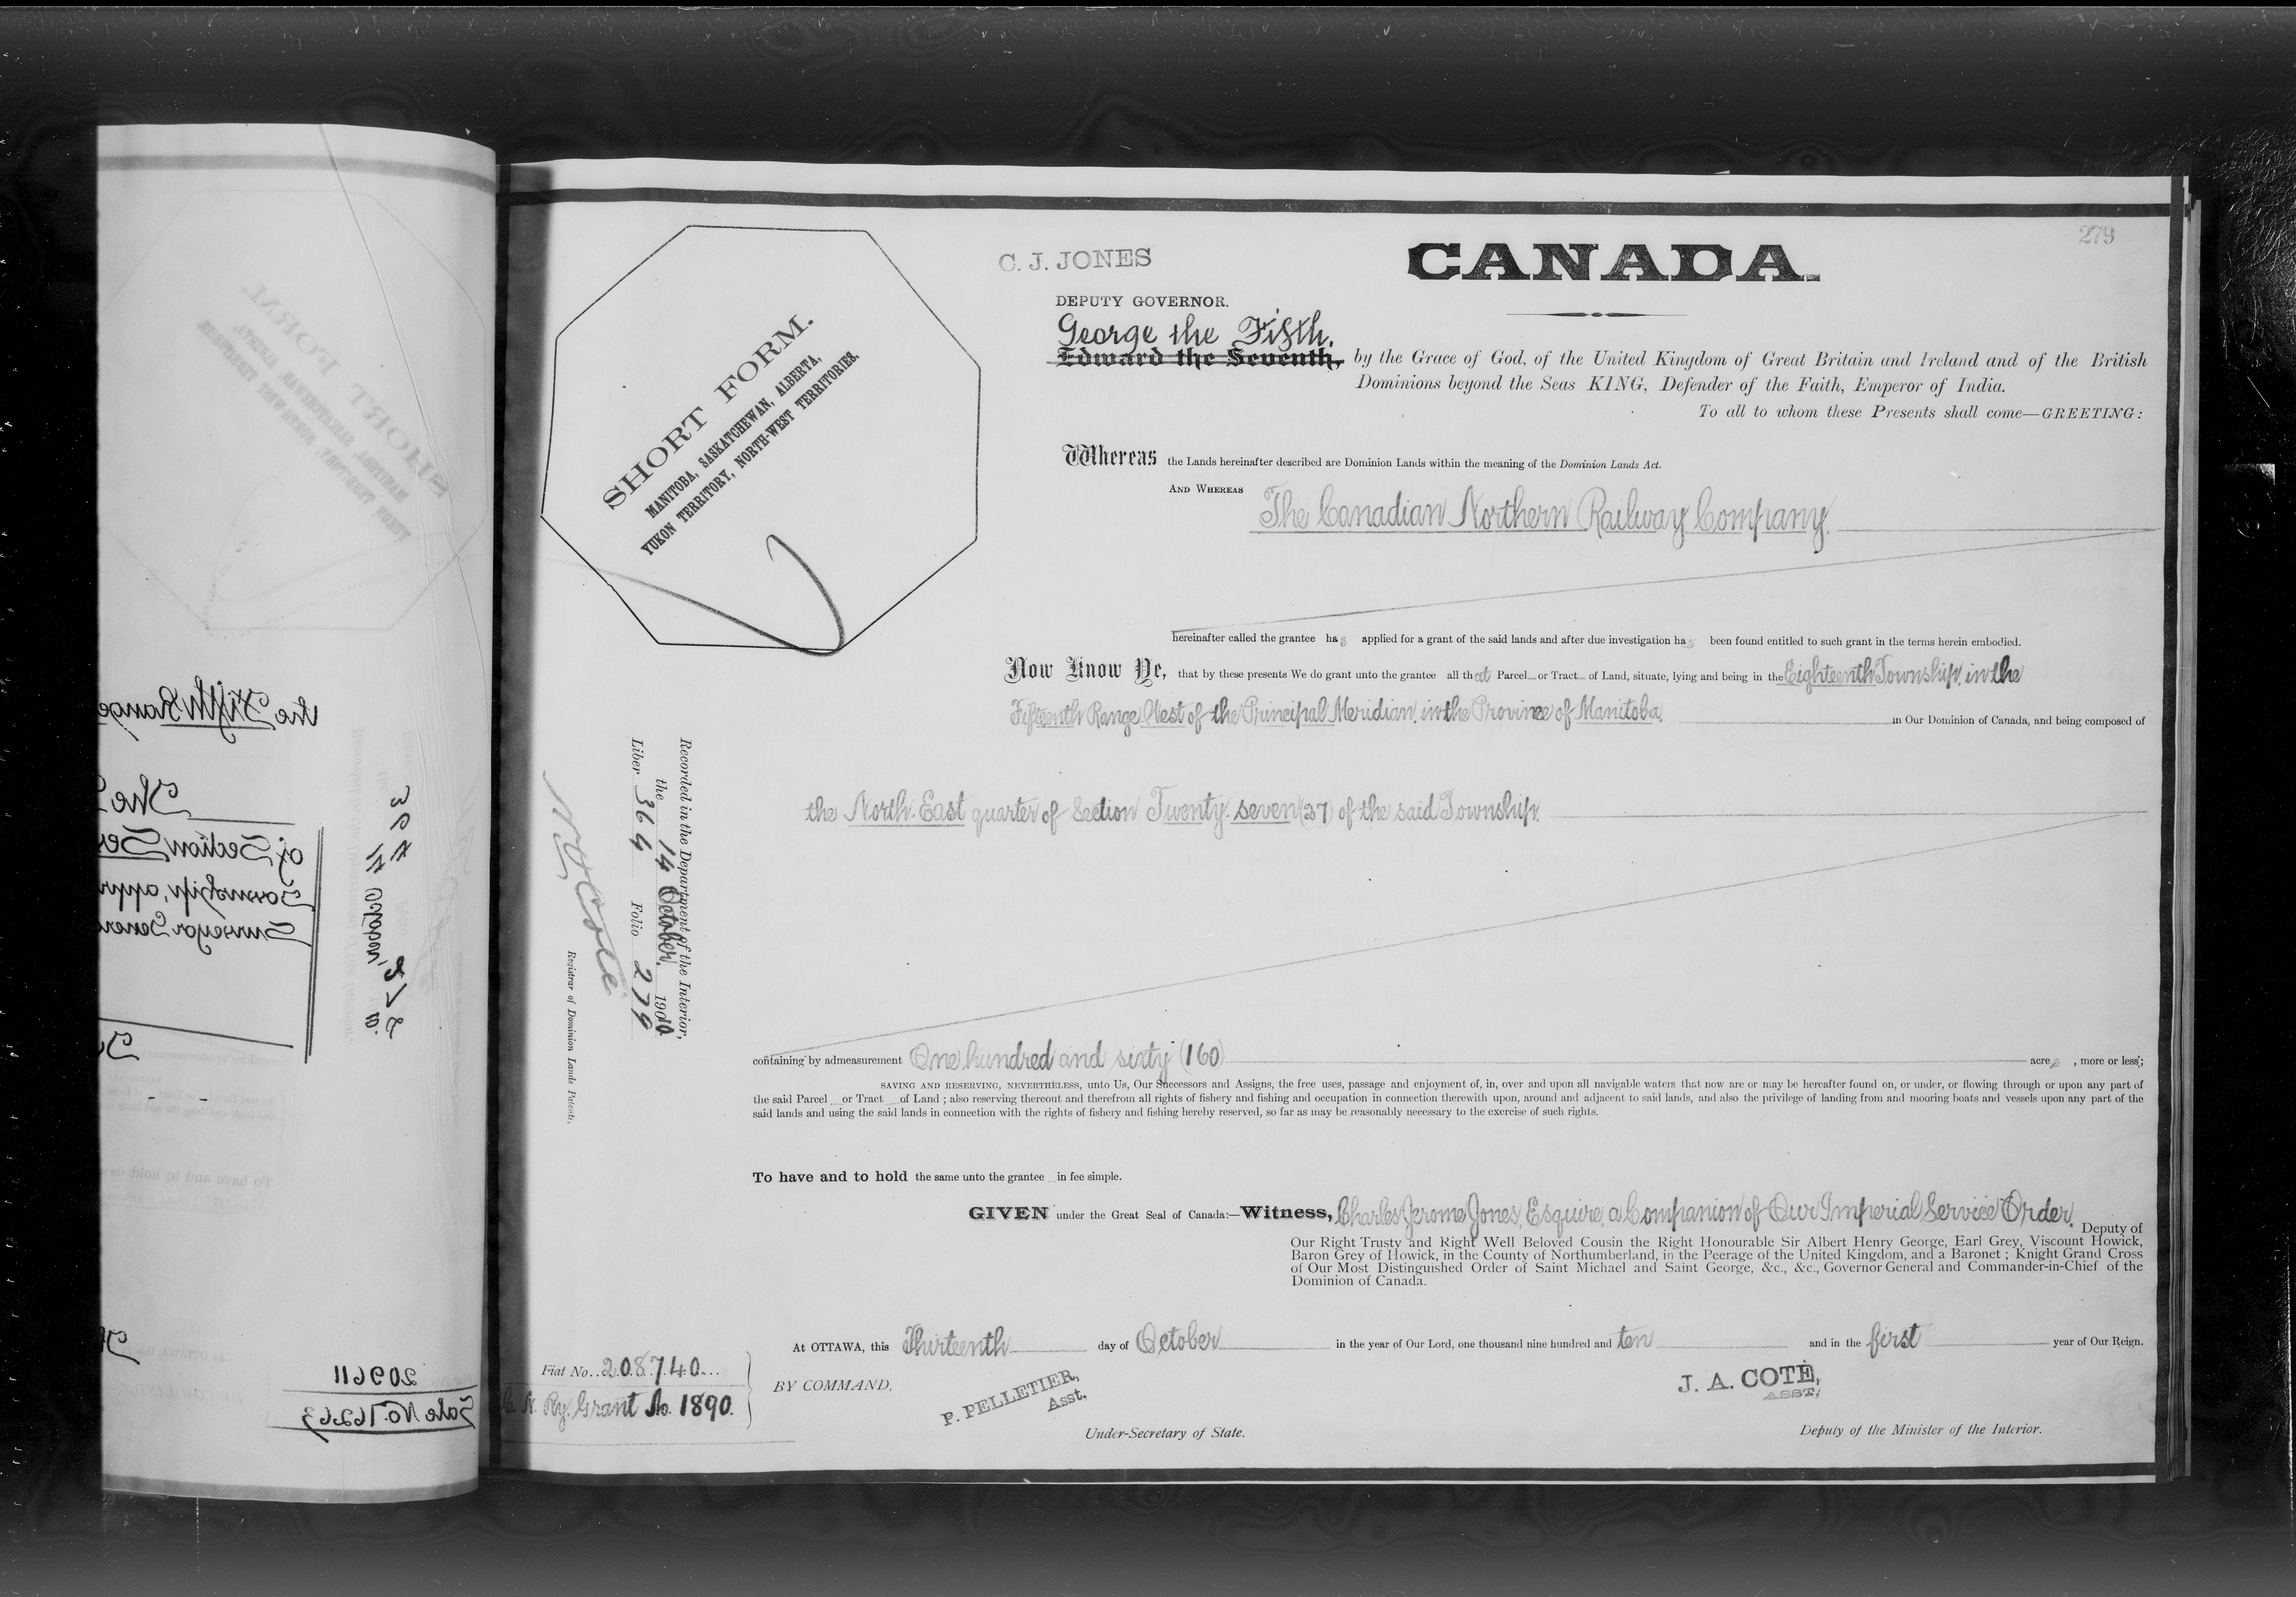 279
C. J. JONES
CANADA.
DEPUTY GOVERNOR.
George the Fifth.
Edward the Seventh, by the Grace of God, of the United Kingdom of Great Britain and Ireland and of the British
Dominions beyond the Seas KING, Defender of the Faith, Emperor of India.
To all to whom these Presents shall come—GREETING:
SHORT FORM.
MANITOBA, SASKATCHEWAN, ALBERTA,
YUKON TERRITORY, NORTH-WEST TERRITORIES.
Whereas the Lands hereinafter described are Dominion Lands within the meaning of the Dominion Lands Act.
AND WHEREAS The Canadian Northern Railway Company.
hereinafter called the grantee has applied for a grant of the said lands and after due investigation has been found entitled to such grant in the terms herein embodied.
Now Know Ye, that by these presents We do grant unto the grantee all that Parcel or Tract of Land, situate, lying and being in the Eighteenth Township, in the
Fifteenth Range West of the Principal Meridian, in the Province of Manitoba, in Our Dominion of Canada, and being composed of
the North-East quarter of Section Twenty-seven (27) of the said Township.
Recorded in the Department of the Interior,
the 14 October, 1910
Liber 364 Folio 279
N O Coté
Registrar of Dominion Lands Patents.
containing by admeasurement One hundred and sixty (160) acres, more or less;
SAVING AND RESERVING, NEVERTHELESS, unto Us, Our Successors and Assigns, the free uses, passage and enjoyment of, in, over and upon all navigable waters that now are or may be hereafter found on, or under, or flowing through or upon any part of
the said Parcel or Tract of Land ; also reserving thereout and therefrom all rights of fishery and fishing and occupation in connection therewith upon, around and adjacent to said lands, and also the privilege of landing from and mooring boats and vessels upon any part of the
said lands and using the said lands in connection with the rights of fishery and fishing hereby reserved, so far as may be reasonably necessary to the exercise of such rights.
To have and to hold the same unto the grantee in fee simple.
GIVEN under the Great Seal of Canada:—Witness, Charles Jerome Jones, Esquire, a Companion of Our Imperial Service Order, Deputy of
Our Right Trusty and Right Well Beloved Cousin the Right Honourable Sir Albert Henry George, Earl Grey, Viscount Howick,
Baron Grey of Howick, in the County of Northumberland, in the Peerage of the United Kingdom, and a Baronet ; Knight Grand Cross
of Our Most Distinguished Order of Saint Michael and Saint George, &c., &c., Governor General and Commander-in-Chief of the
Dominion of Canada.
At OTTAWA, this Thirteenth day of October in the year of Our Lord, one thousand nine hundred and ten and in the first year of Our Reign.
Fiat No. 208740
C. N. Ry. Grant No. 1890.
BY COMMAND,
P. PELLETIER,
Asst.
Under-Secretary of State.
J. A. COTÉ,
ASST.
Deputy of the Minister of the Interior.
the Fifth Range
The
of Section Sev
Township, appr
Surveyor Gener
364
11 October,
209611
Sale No. 16263